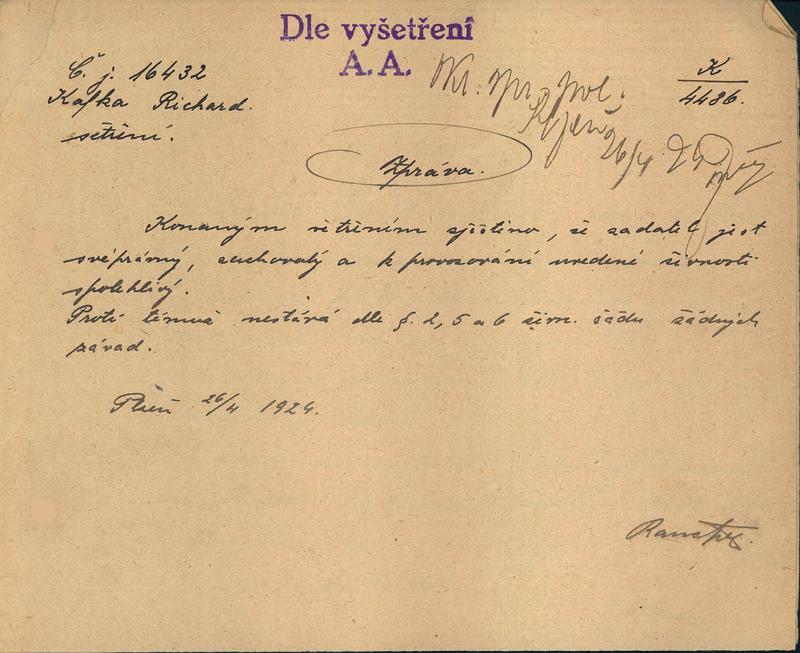 Dle vyšetření
A. A.
Č. j. 16432
Kafka Richard.
šetření.
K
4486.
pol.
26/4 24
Zpráva.
Konaným šetřením zjištěno, že žadatel jest
svéprávný, zachovalý a k provozování uvedené živnosti
spolehlivý.
Proti témuž nestává dle §. 2, 5 a 6 živn. řádu žádných
závad.
Plzeň 26/4 1924.